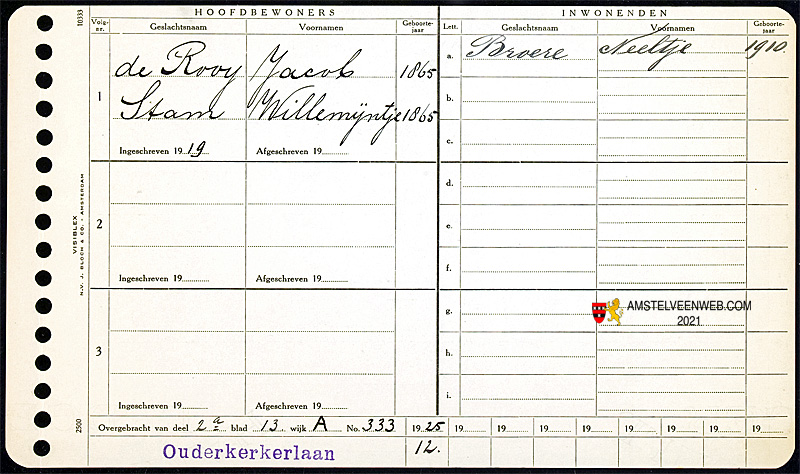 HOOFDBEWONERS
INWONENDEN
Volg-nr. Geslachtsnaam Voornamen Geboorte-jaar Lett. Geslachtsnaam Voornamen Geboorte-jaar
1 de Rooy Jacob 1865
Stam Willemijntje 1865
Ingeschreven 1919 Afgeschreven 19
a. Broere Neeltje 1910.
b.
c.
2
Ingeschreven 19 Afgeschreven 19
d.
e.
f.
3
Ingeschreven 19 Afgeschreven 19
g.
h.
i.
AMSTELVEENWEB.COM
2021
Overgebracht van deel 2a blad 13 wijk A No. 333 1925 19 19 19 19 19 19 19 19
Ouderkerkerlaan 12.
10333
VISIBLEX
N.V. J. BLOCH & CO. - AMSTERDAM
2500